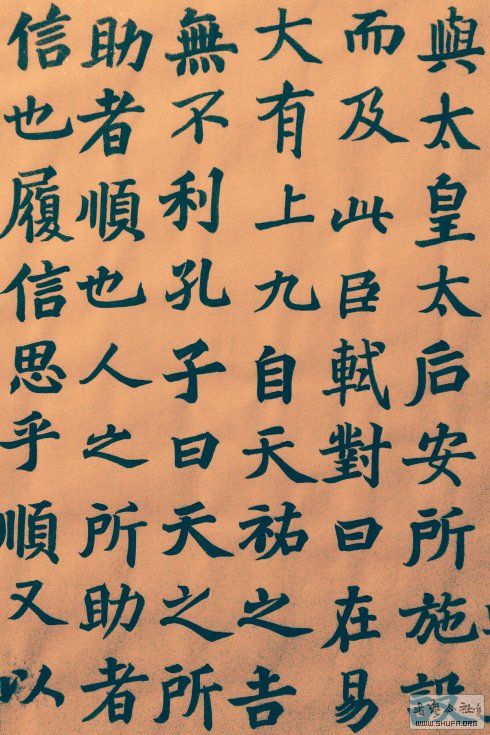 與太皇太后安所施設
而及此臣軾對曰在易
大有上九自天祐之吉
無不利孔子曰天之所
助者順也人之所助者
信也履信思乎順又以
WWW.SHUFA.ORG